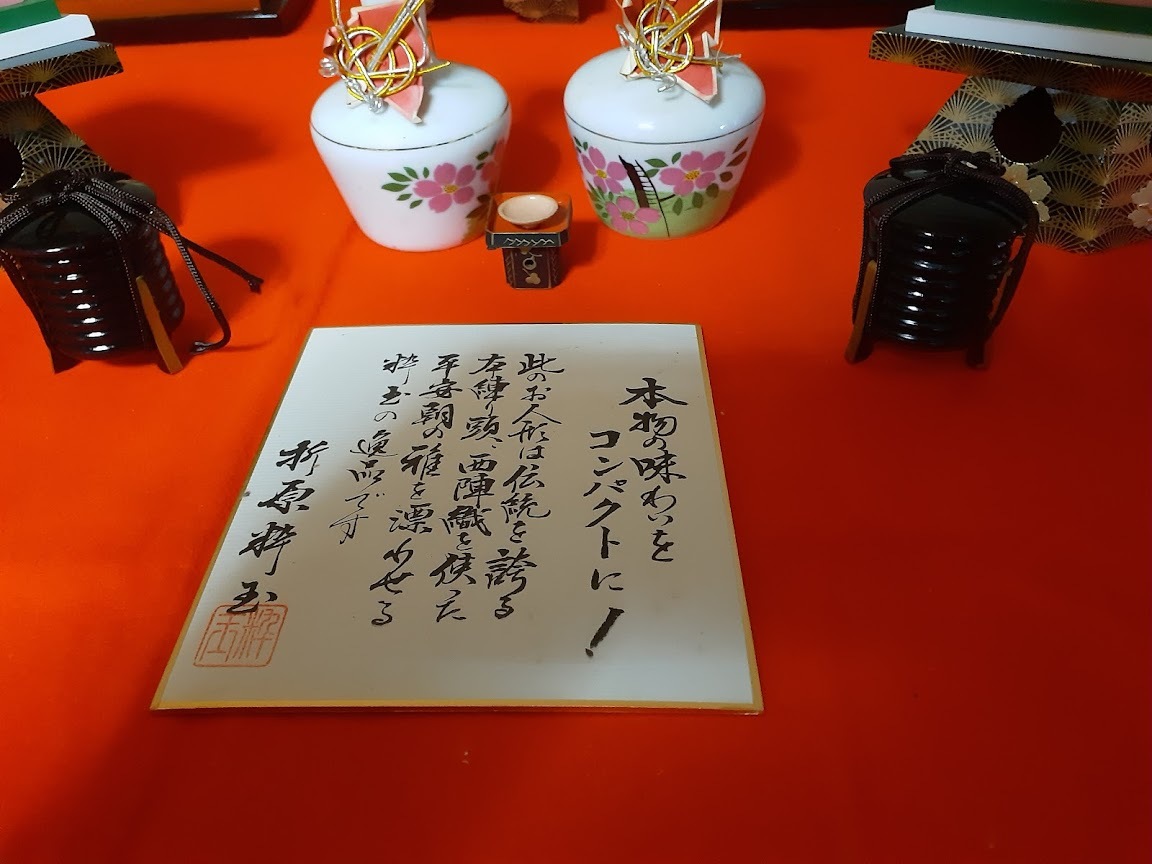 本物の味わいを
コンパクトに!
此のお人形は伝統を誇る
本練り頭、西陣織を使った
平安朝の雅を漂わせる
粋玉の逸品です
折原粋玉
粋玉